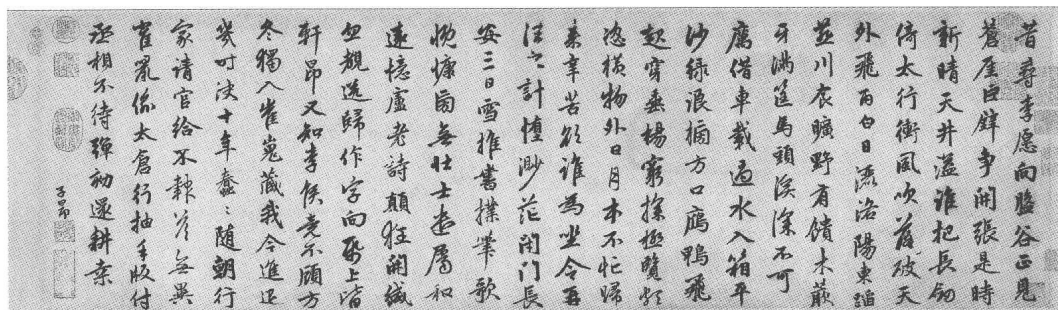 昔尋李愿向盤谷正見
蒼崖巨壁爭開張是時
新晴天井溢誰把長劍
倚太行衝風吹落破天
外飛雨白日灑洛陽東蹈
燕川食曠野有饋木蕨
牙滿筐馬頭溪深不可
厲借車載過水入箱平
沙綠浪搒方口鴈鴨飛
起穿垂楊窮探極覽頗
恣橫物外日月本不忙歸
來辛苦欲誰為坐令再
往之計墮渺茫閉門長
安三日雪推書撲筆歌
慨慷旁無壯士遣屬和
遠憶盧老詩顛狂開緘
忽覩送歸作字向紙上皆
軒昂又知李侯竟不顧方
冬獨入崔嵬藏我今進退
幾時決十年蠢々隨朝行
家請官給不報答無異
雀鼠偷太倉行抽手版付
丞相不待彈劾還耕桑
子昂